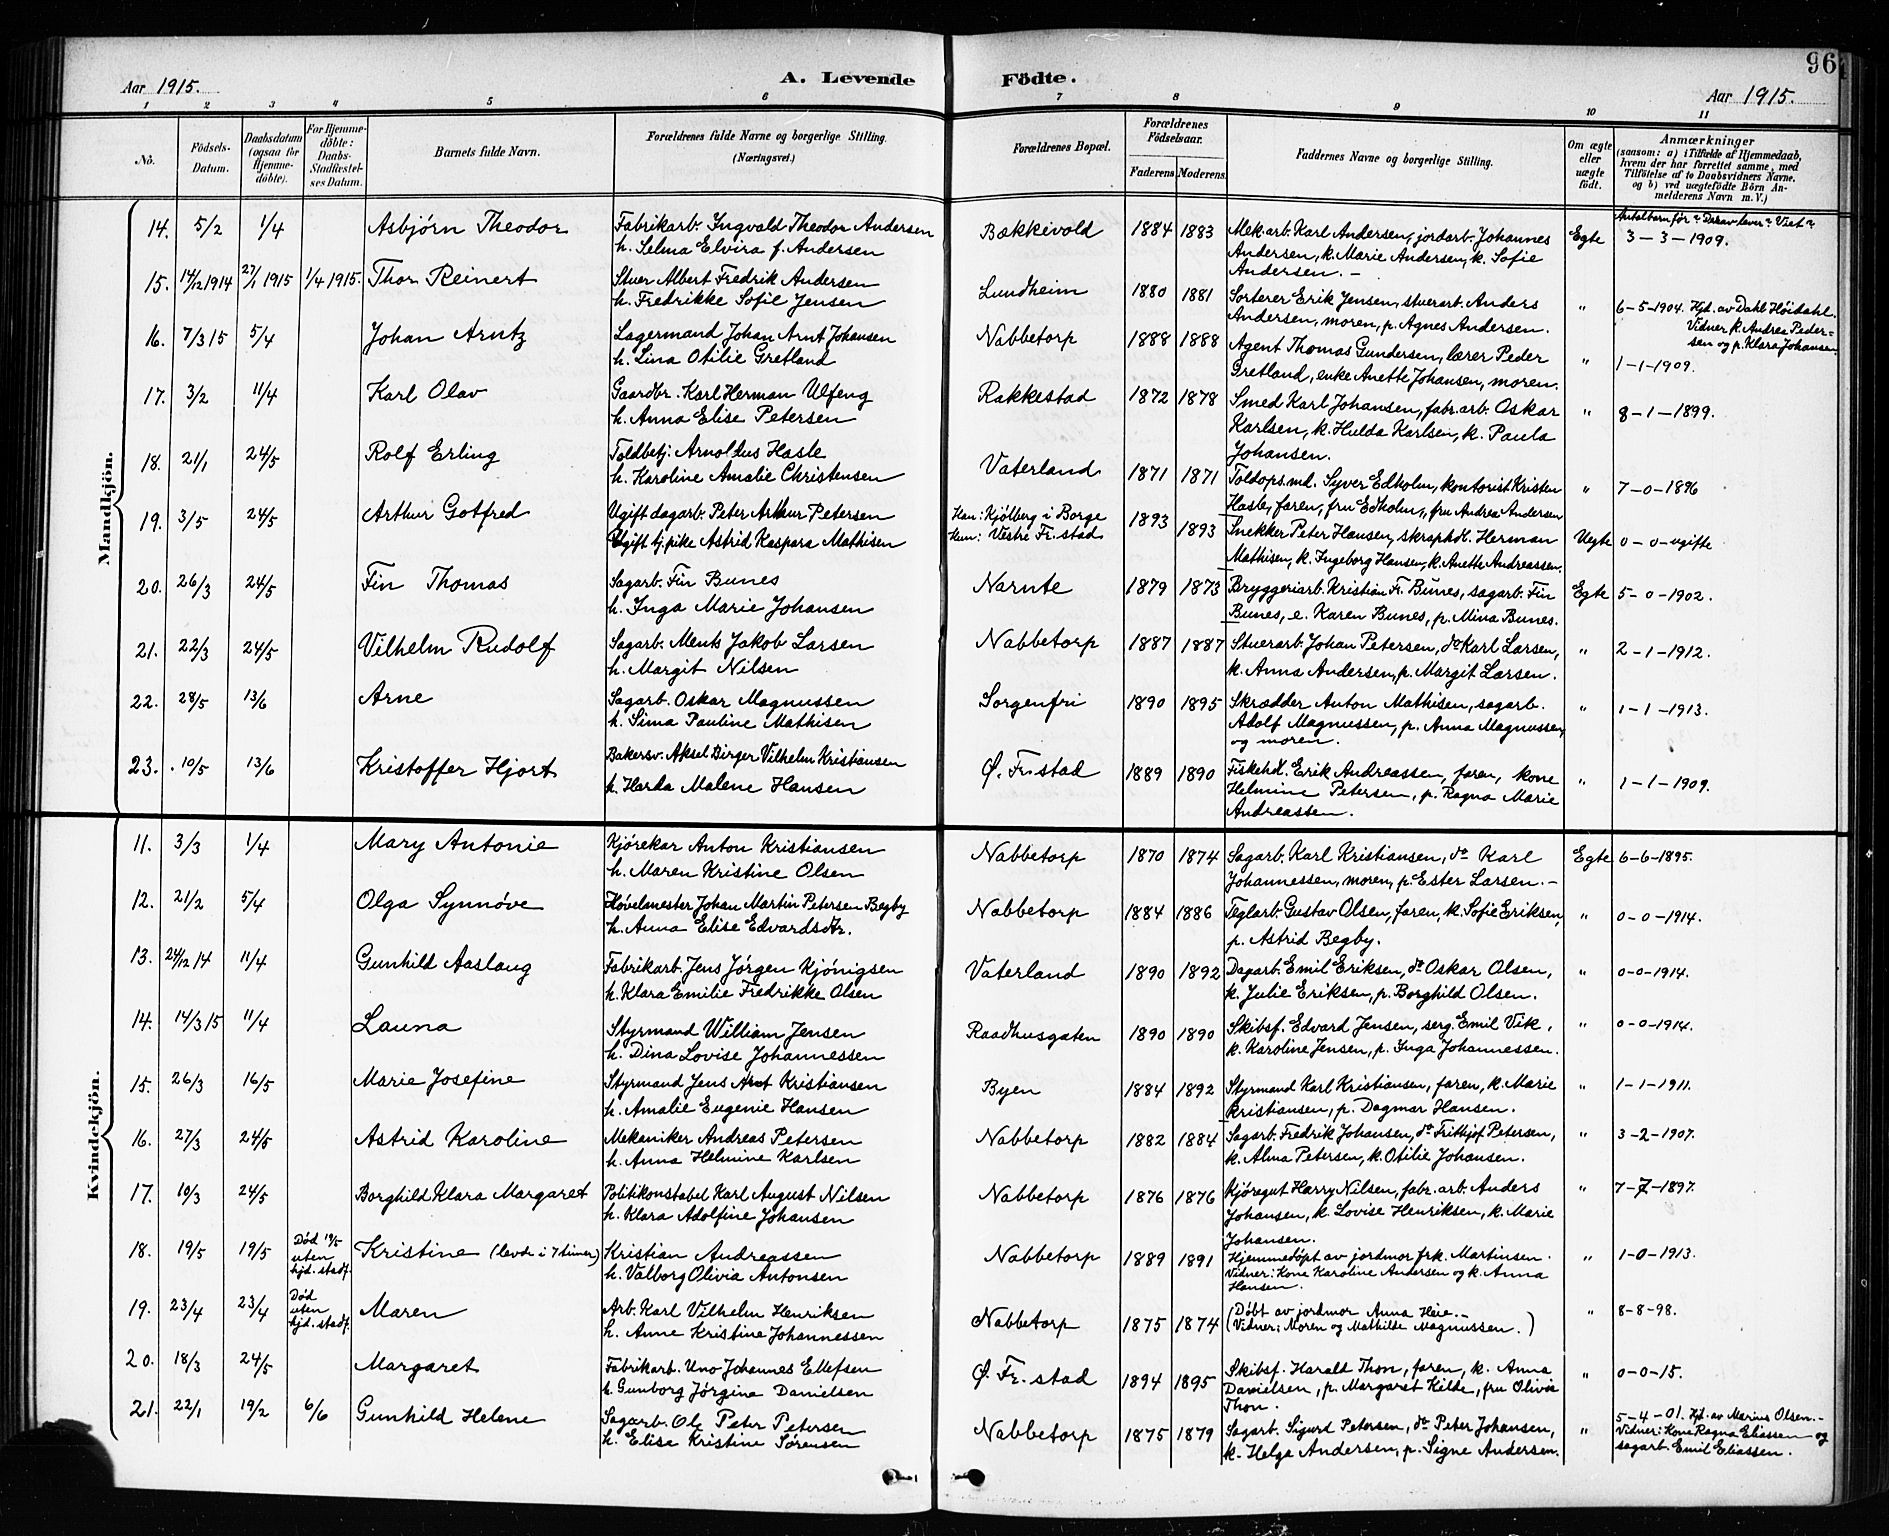 96
Aar 1915.
A. Levende Födte.
Aar 1915.
1 2 3 4 5 6 7 8 9 10 11
No.
Födsels-Datum.
Daabsdatum (ogsaa for Hjemme-döbte).
For Hjemme-döbte: Daabs-Stadfæstel-ses Datum.
Barnets fulde Navn.
Forældrenes fulde Navne og borgerlige Stilling. (Næringsvei.)
Forældrenes Bopæl.
Forældrenes Födselsaar.
Faderens Moderens
Faddernes Navne og borgerlige Stilling.
Om ægte eller uægte födt.
Anmærkninger
(saasom: a) i Tilfælde af Hjemmedaab, hvem der har forrettet samme, med Tilföielse af to Daabsvidners Navne, og b) ved uægtefödte Börn An-melderens Navn m. V.)
Mandkjön.
14. 5/2 1/4 Asbjørn Theodor Fabrikarb. Ingvald Theodor Andersen Bækkivold 1884 1883 Mek.arb. Karl Andersen, jordarb. Johannes Egte Antal barn før " Derav lever " Viet "
h. Selma Elvira f. Andersen Andersen, k. Marie Andersen, k. Sofie 3-3-1909.
Andersen.-
15. 14/12 1914 27/1 1915 1/4 1915. Thor Reinert Stuer Albert Fredrik Andersen Lundheim 1880 1881 Sorterer Erik Jensen, stuerarb. Anders " 6-5-1904. Hjd. av Dahl Høidahl.
h. Fredrikke Sofie Jensen Andersen, moren, p. Agnes Andersen. Vidner k. Andrea Peder-
sen og p. Klara Johansen
16. 7/3 15 5/4 Johan Arntz Lagermand Johan Arnt Johansen Nabbetorp 1888 1888 Agent Thomas Gundersen, lærer Peder " 1-1-1909.
h. Lina Otilie Gretland Gretland, enke Anette Johansen, moren.
17. 3/2 11/4 Karl Olav Gaardbr. Karl Herman Ulfeng Rakkestad 1872 1878 Smed Karl Johansen, fabr.arb. Oskar " 8-1-1899.
h. Anna Elise Petersen Karlsen, k. Hulda Karlsen, k. Paula
Johansen.
18. 21/1 24/5 Rolf Erling Toldbetj. Arnoldus Hasle Vaterland 1871 1871 Toldops.md. Syver Edholm, kontorist Kristen " 7-0-1896
h. Karoline Amalie Christensen Hasle, faren, fru Edholm, fru Andrea Andersen
19. 3/5 24/5 Arthur Gotfred Ugift dagarb. Peter Arthur Petersen Han: Kjølberg i Borge 1893 1893 Snekker Peter Hansen, skraphdl. Herman Uegte 0-0-ugifte
Ugift tj.pike Astrid Kaspara Mathisen Hun: Vestre Fr.stad Mathisen, k. Ingeborg Hansen, k. Anette Andreassen.
20. 26/3 24/5 Fin Thomas Sagarb. Fin Bunes Narnte 1879 1873 Bryggeriarb. Kristian Fr. Bunes, sagarb. Fin Egte 5-0-1902.
h. Inga Marie Johansen Bunes, e. Karen Bunes, p. Mina Bunes.
21. 22/3 24/5 Vilhelm Rudolf Sagarb. Ments Jakob Larsen Nabbetorp 1887 1887 Stuerarb. Johan Petersen, do Karl Larsen, " 2-1-1912.
h. Margit Nilsen k. Anna Andersen, p. Margit Larsen.
22. 28/5 13/6 Arne Sagarb. Oskar Magnussen Sorgenfri 1890 1895 Skrædder Anton Mathisen, sagarb. " 1-1-1913.
h. Sima Pauline Mathisen Adolf Magnussen, p. Anna Magnussen,
og moren.
23. 10/5 13/6 Kristoffer Hjort Bakersv. Aksel Birger Vilhelm Kristiansen Ø. Fr.stad 1889 1890 Fiskehdl. Erik Andreassen, faren, kone " 1-1-1909.
h. Harda Malene Hansen Helmine Petersen, p. Ragna Marie
Andreassen.
Kvindekjön.
11. 3/3 1/4 Mary Antonie Kjørekar Anton Kristiansen Nabbetorp 1870 1874 Sagarb. Karl Kristiansen, do Karl Egte 6-6-1895.
h. Maren Kristine Olsen Johannessen, moren, p. Ester Larsen.-
12. 21/2 5/4 Olga Synnøve Høvelmester Johan Martin Petersen Begby Nabbetorp 1884 1886 Teglarb. Gustav Olsen, faren, k. Sofie Eriksen, " 0-0-1914.
h. Anna Elise Edvardsdtr. p. Astrid Begby.
13. 24/12 14 11/4 Gunhild Aaslaug Fabrikarb. Jens Jørgen Kjønigsen Vaterland 1890 1892 Dagarb. Emil Eriksen, do Oskar Olsen, " 0-0-1914.
h. Klara Emilie Fredrikke Olsen k. Julie Eriksen, p. Borghild Olsen.
14. 14/3 15 11/4 Launa Styrmand William Jensen Raadhusgaten 1890 1890 Skibsf. Edvard Jensen, serg. Emil Vik, " 0-0-1914.
h. Dina Lovise Johannessen k. Karoline Jensen, p. Inga Johannessen.
15. 26/3 16/5 Marie Josefine Styrmand Jens Arnt Kristiansen Byen 1884 1892 Styrmand Karl Kristiansen, faren, k. Marie " 1-1-1911.
h. Amalie Eugenie Hansen Kristiansen, p. Dagmar Hansen.
16. 27/3 24/5 Astrid Karoline Mekaniker Andreas Petersen Nabbetorp 1882 1884 Sagarb. Fredrik Johansen, do Frithjof Petersen, " 3-2-1907.
h. Anna Helmine Karlsen k. Alma Petersen, k. Otilie Johansen.
17. 10/3 24/5 Borghild Klara Margaret Politikonstabel Karl August Nilsen Nabbetorp 1876 1876 Kjøregut Harry Nilsen, fabr.arb. Anders " 7-7-1897.
h. Klara Adolfine Johansen Johansen, k. Lovise Henriksen, k. Marie
Johansen.
18. 19/5 19/5 Død 19/5 uten hjd. stadf. Kristine (levde i 7 timer) Kristian Andreassen Nabbetorp 1889 1891 Hjemmedøpt av jordmor frk. Martinsen. " 1-0-1913.
h. Valborg Olivia Antonsen Vidner: Kone Karoline Andersen og k. Anna
Hansen.
19. 23/4 23/4 Død uten hjd. stadf. Maren Arb. Karl Vilhelm Henriksen Nabbetorp 1875 1874 (Døbt av jordmor Anna Heie.- " 8-8-98.
h. Anne Kristine Johannessen (Vidner: Moren og Mathilde Magnussen.)
20. 18/3 24/5 Margaret Fabrikarb. Uno Johannes Ellefsen Ø. Fr.stad 1894 1895 Skibsf. Harald Thon, faren, k. Anna " 0-0-15.
h. Gunborg Jørgine Danielsen Danielsen, p. Margaret Kilde, fru Olivia
Thon.
21. 22/1 19/2 6/6 Gunhild Helene Sagarb. Ole Peter Petersen Nabbetorp 1875 1879 Sagarb. Sigurd Petersen, do Peter Johansen, " 5-4-01. Hjd. av Marius Olsen.-
h. Elise Kristine Sørensen k. Helga Andersen, p. Signe Andersen. Vidner: Kone Ragna Eliassen og
sagarb. Emil Eliassen.